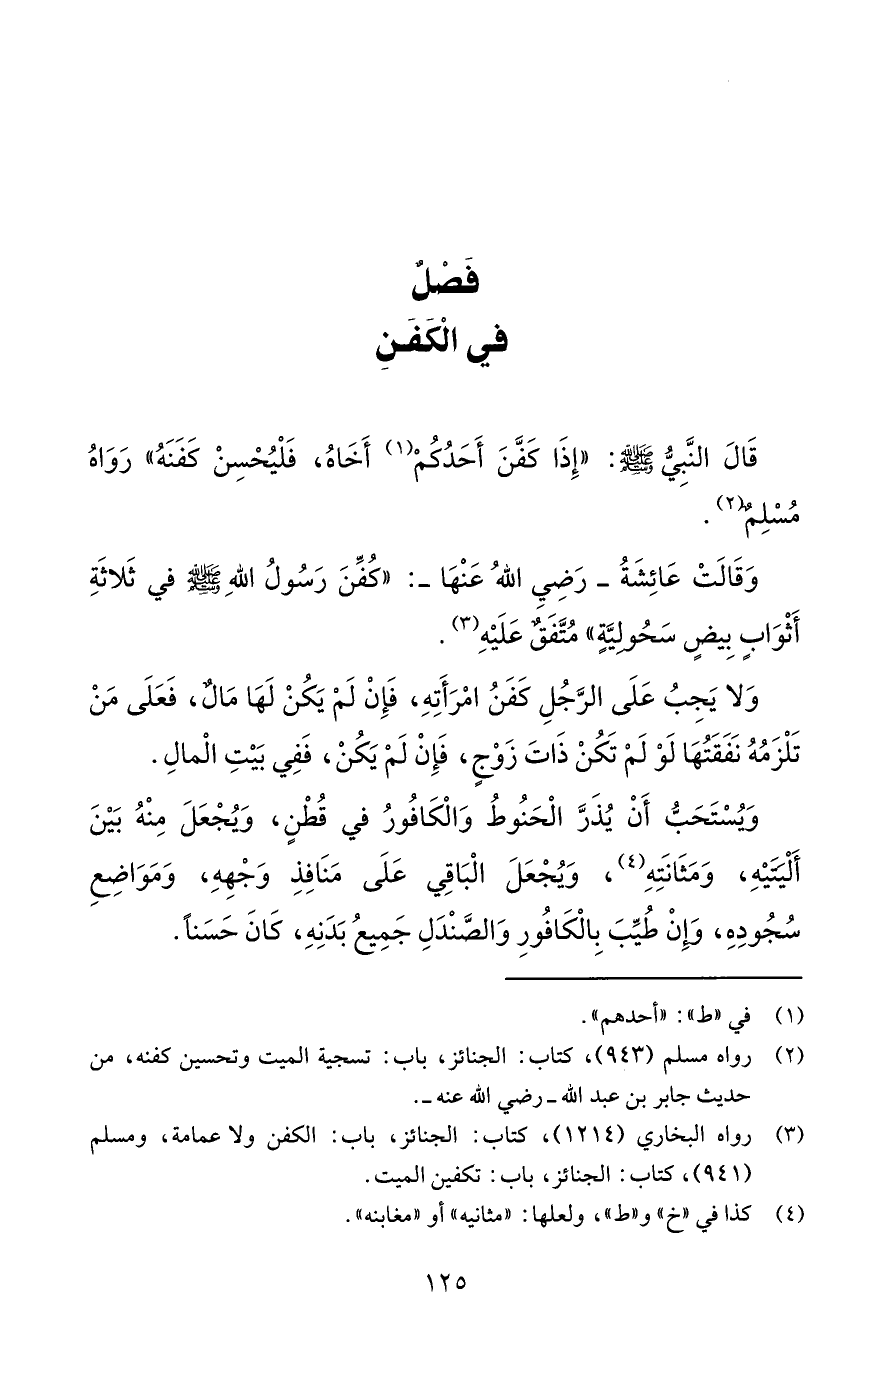 فَصْلٌ
في الْكَفَنِ
قَالَ النَّبِيُّ ﷺ: «إِذَا كَفَّنَ أَحَدُكُمْ(١) أَخَاهُ، فَلْيُحْسِنْ كَفَنَهُ» رَوَاهُ
مُسْلِمٌ(٢).
وَقَالَتْ عَائِشَةُ ـ رَضِيِ اللهُ عَنْهَا ـ: «كُفِّنَ رَسُولُ اللهِ ﷺ في ثَلاثَةِ
أَثْوَابٍ بِيضٍ سَحُولِيَّةٍ» مُتَّفَقٌ عَلَيْهِ(٣).
وَلا يَجِبُ عَلَى الرَّجُلِ كَفَنُ امْرَأَتِهِ، فَإِنْ لَمْ يَكُنْ لَهَا مَالٌ، فَعَلَى مَنْ
تَلْزَمُهُ نَفَقَتُهَا لَوْ لَمْ تَكُنْ ذَاتَ زَوْجٍ، فَإِنْ لَمْ يَكُنْ، فَفِي بَيْتِ الْمالِ.
وَيُسْتَحَبُّ أَنْ يُذَرَّ الْحَنُوطُ وَالْكَافُورُ في قُطْنٍ، وَيُجْعَلَ مِنْهُ بَيْنَ
أَلْيَتَيْهِ، وَمَثَانَتِهِ(٤)، وَيُجْعَلَ الْبَاقِي عَلَى مَنَافِذِ وَجْهِهِ، وَمَوَاضِعِ
سُجُودِهِ، وَإِنْ طُيِّبَ بِالْكَافُورِ وَالصَّنْدَلِ جَمِيعُ بَدَنِهِ، كَانَ حَسَناً.
(١) في «ط»: «أحدهم».
(٢) رواه مسلم (٩٤٣)، كتاب: الجنائز، باب: تسجية الميت وتحسين كفنه، من
حديث جابر بن عبد الله ـ رضي الله عنه ـ.
(٣) رواه البخاري (١٢١٤)، كتاب: الجنائز، باب: الكفن ولا عمامة، ومسلم
(٩٤١)، كتاب: الجنائز، باب: تكفين الميت.
(٤) كذا في «خ» و«ط»، ولعلها: «مثانيه» أو «مغابنه».
١٢٥